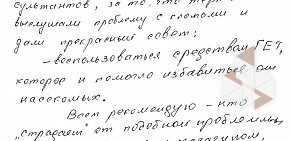 сультантов, за то, что
выслушали проблему с клопами и
дали прекрасный совет:
- воспользоваться средством ГЕТ,
которое и помогло избавиться от
насекомых.
Всем рекомендую - кто
"страдает" от подобной проблемы,